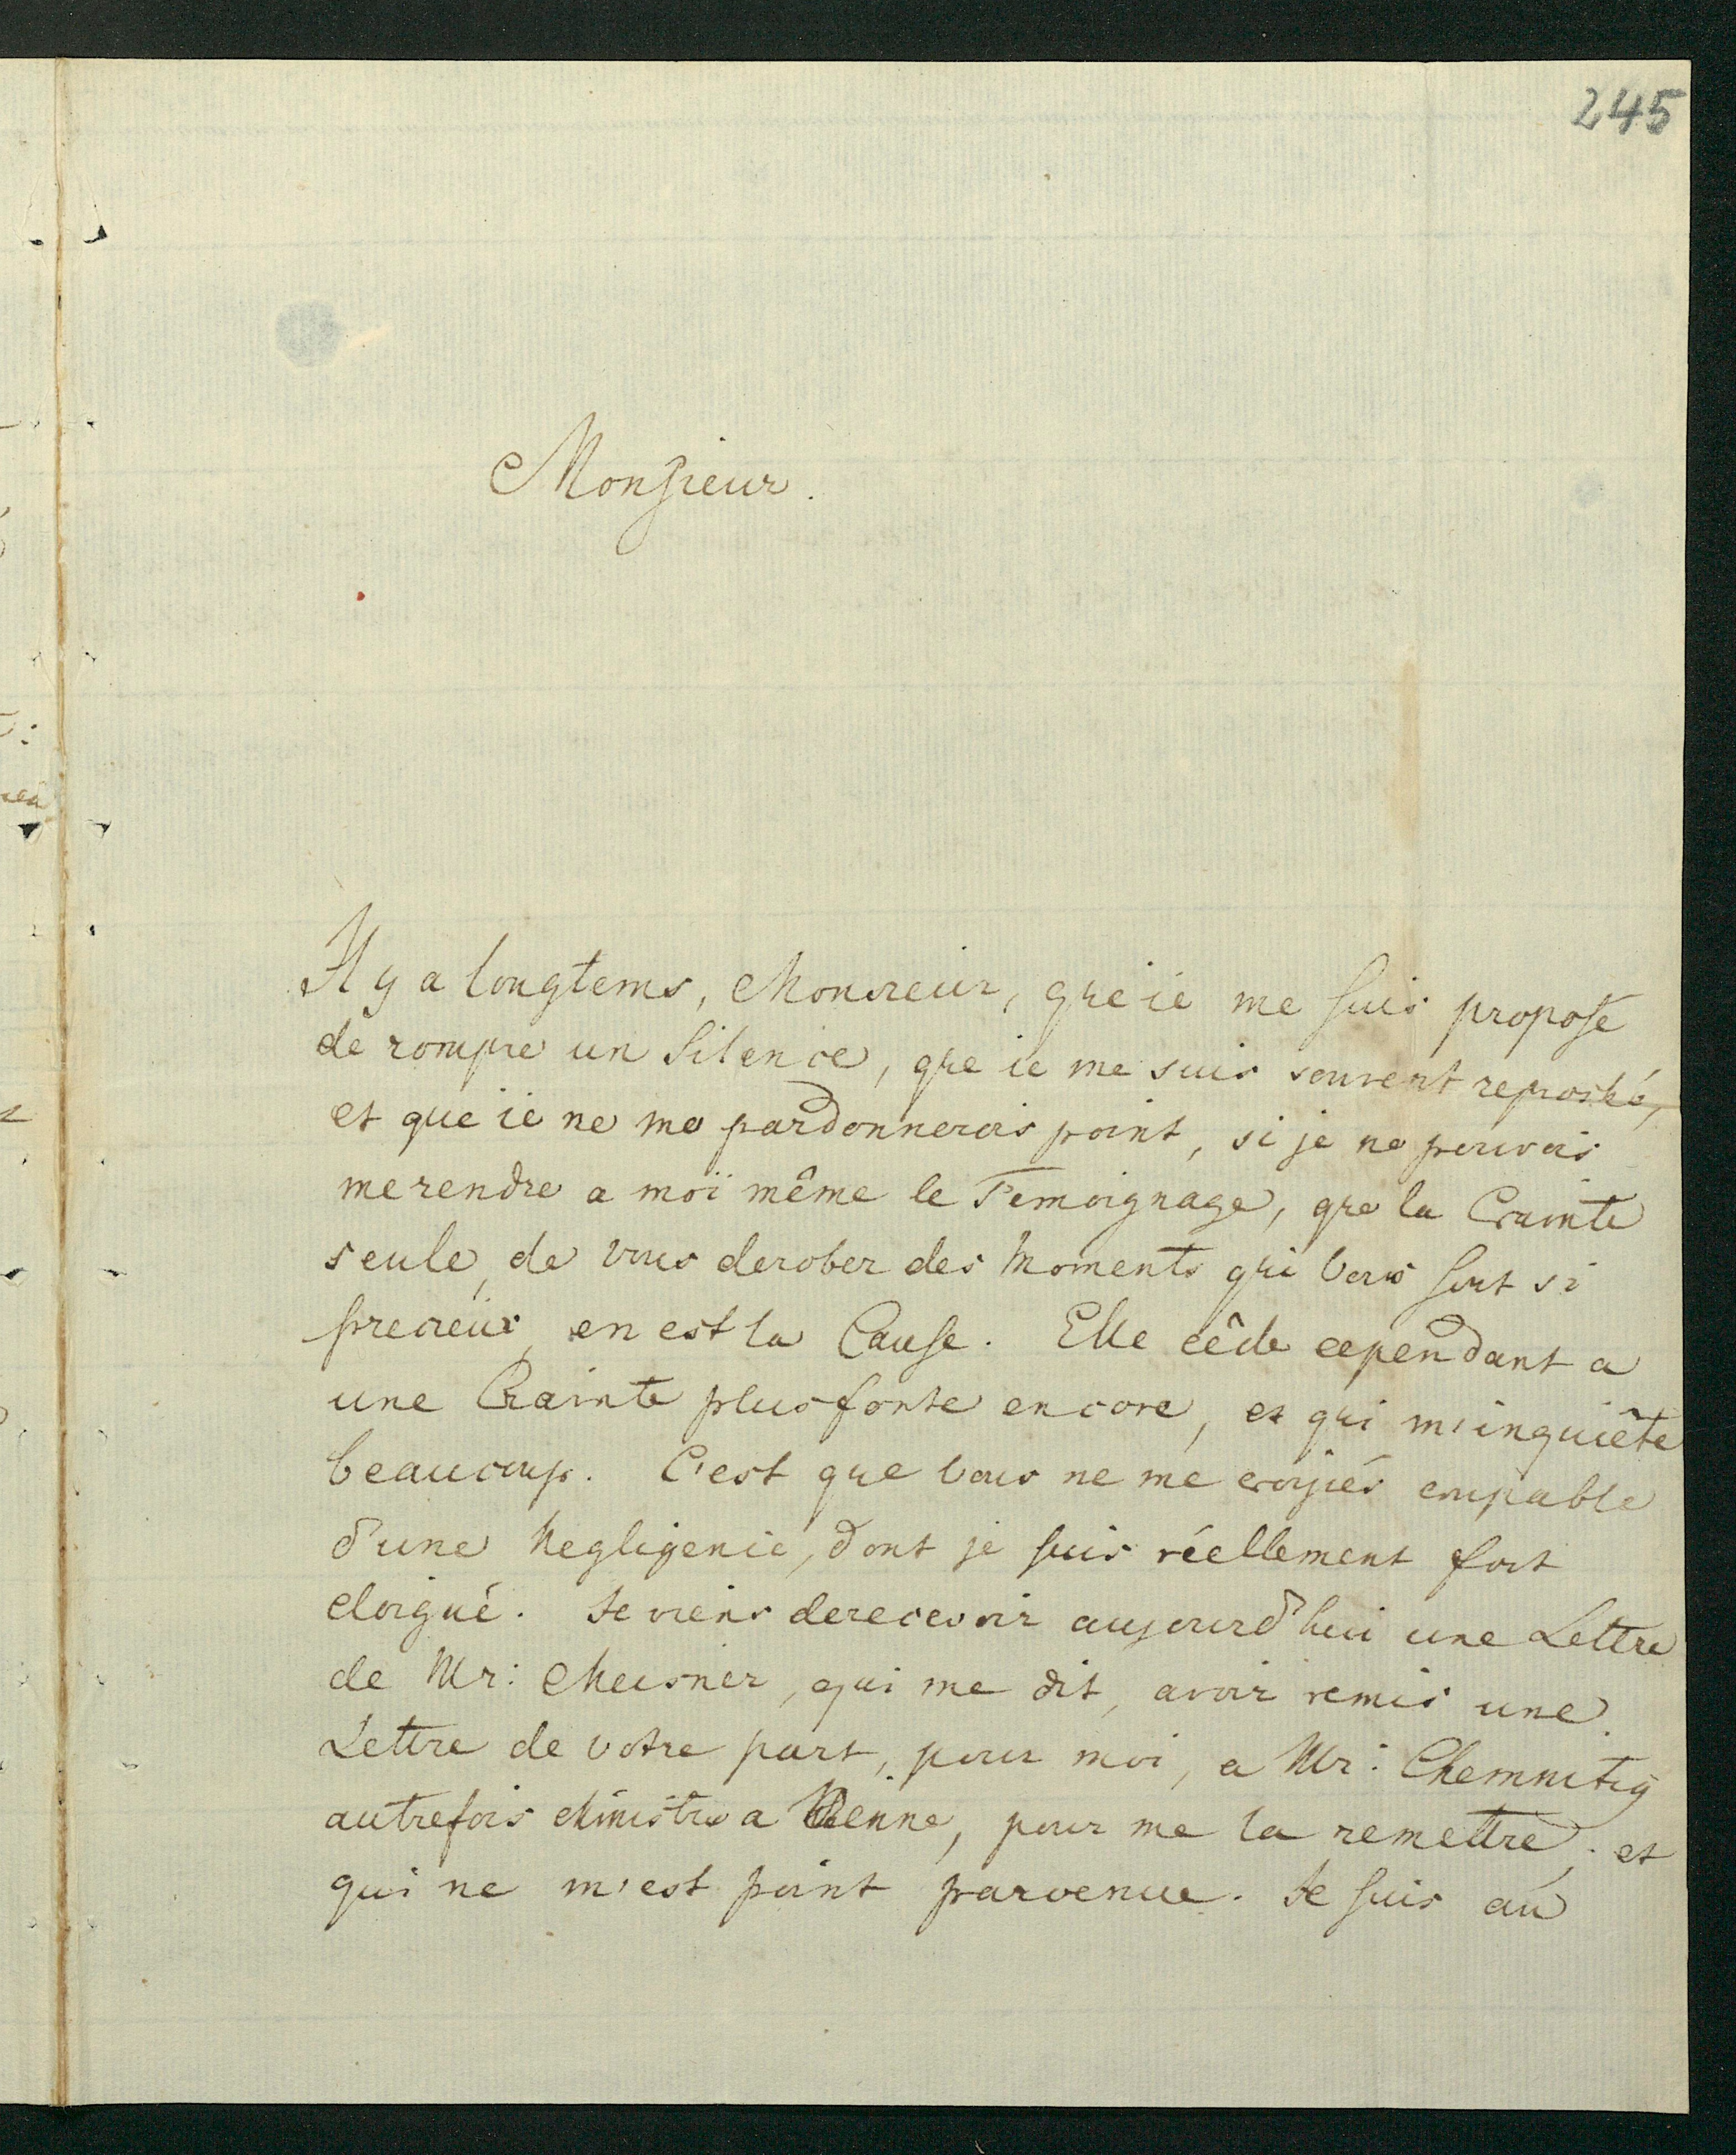 245
Monsieur.
Il y a longtems, Monsieur, que ie me suis proposé
de rompre un Silence, que ie me suis souvent reproché,
et que ie ne me pardonnerois point, si je ne pouvois
me rendre a moï même le Temoignage, que la Crainte
seule, de vous derober des Moments qui vous sont si
precieux, en est la Cause. Elle cêde cependant a
une Crainte plus forte encore, et qui m'inquiête
beaucoup. C'est que vous ne me croyiés coupable
d'une Negligence, dont je suis réellement fort
eloigné. Je viens de recevoir aujourd'hui une Lettre
de Mr: Meusner, qui me dit, avoir remis une
Lettre de votre part, pour moi, a Mr: Chemnitz
autrefois Ministre a Vienne, pour me la remettre, et
qui ne m'est point parvenue. Je suis au